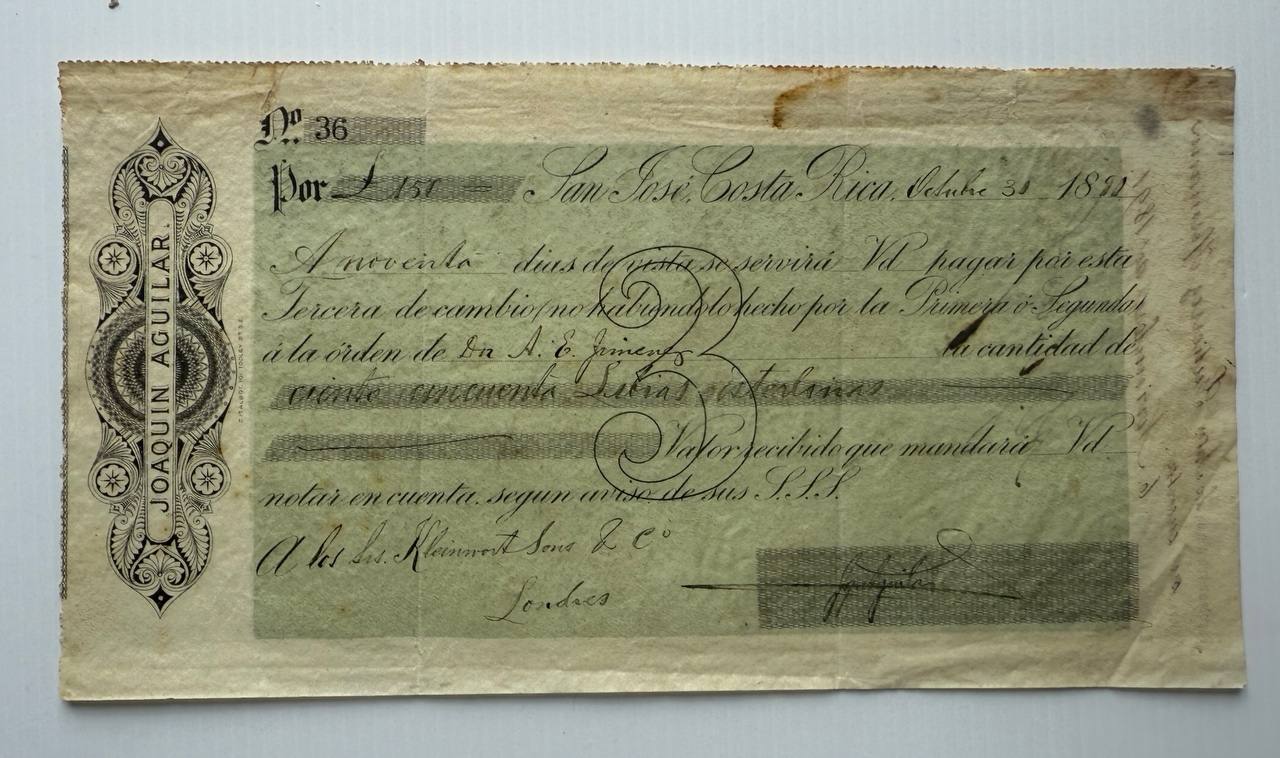 No. 36
Por £ 150 San José, Costa Rica, Octubre 31 18
A noventa dias de vista se servirá Vd pagar por esta
Tercera de cambio (no habiendolo hecho por la Primera ó Segunda)
á la órden de Don A. E. Jimenez la cantidad de
ciento cincuenta Libras esterlinas
3
Valor recibido que mandará Vd
notar en cuenta, segun aviso de sus S.S.S.
A los Srs. Kleinwort Sons & Co
Londres
JOAQUIN AGUILAR.